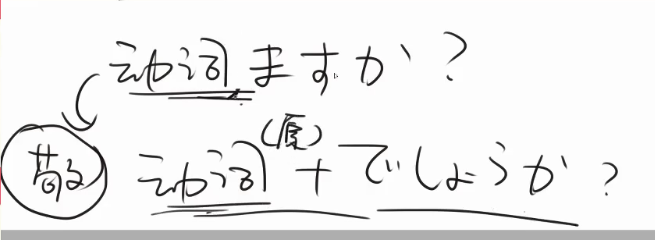 动词ますか？
敬 动词(原)+でしょうか？